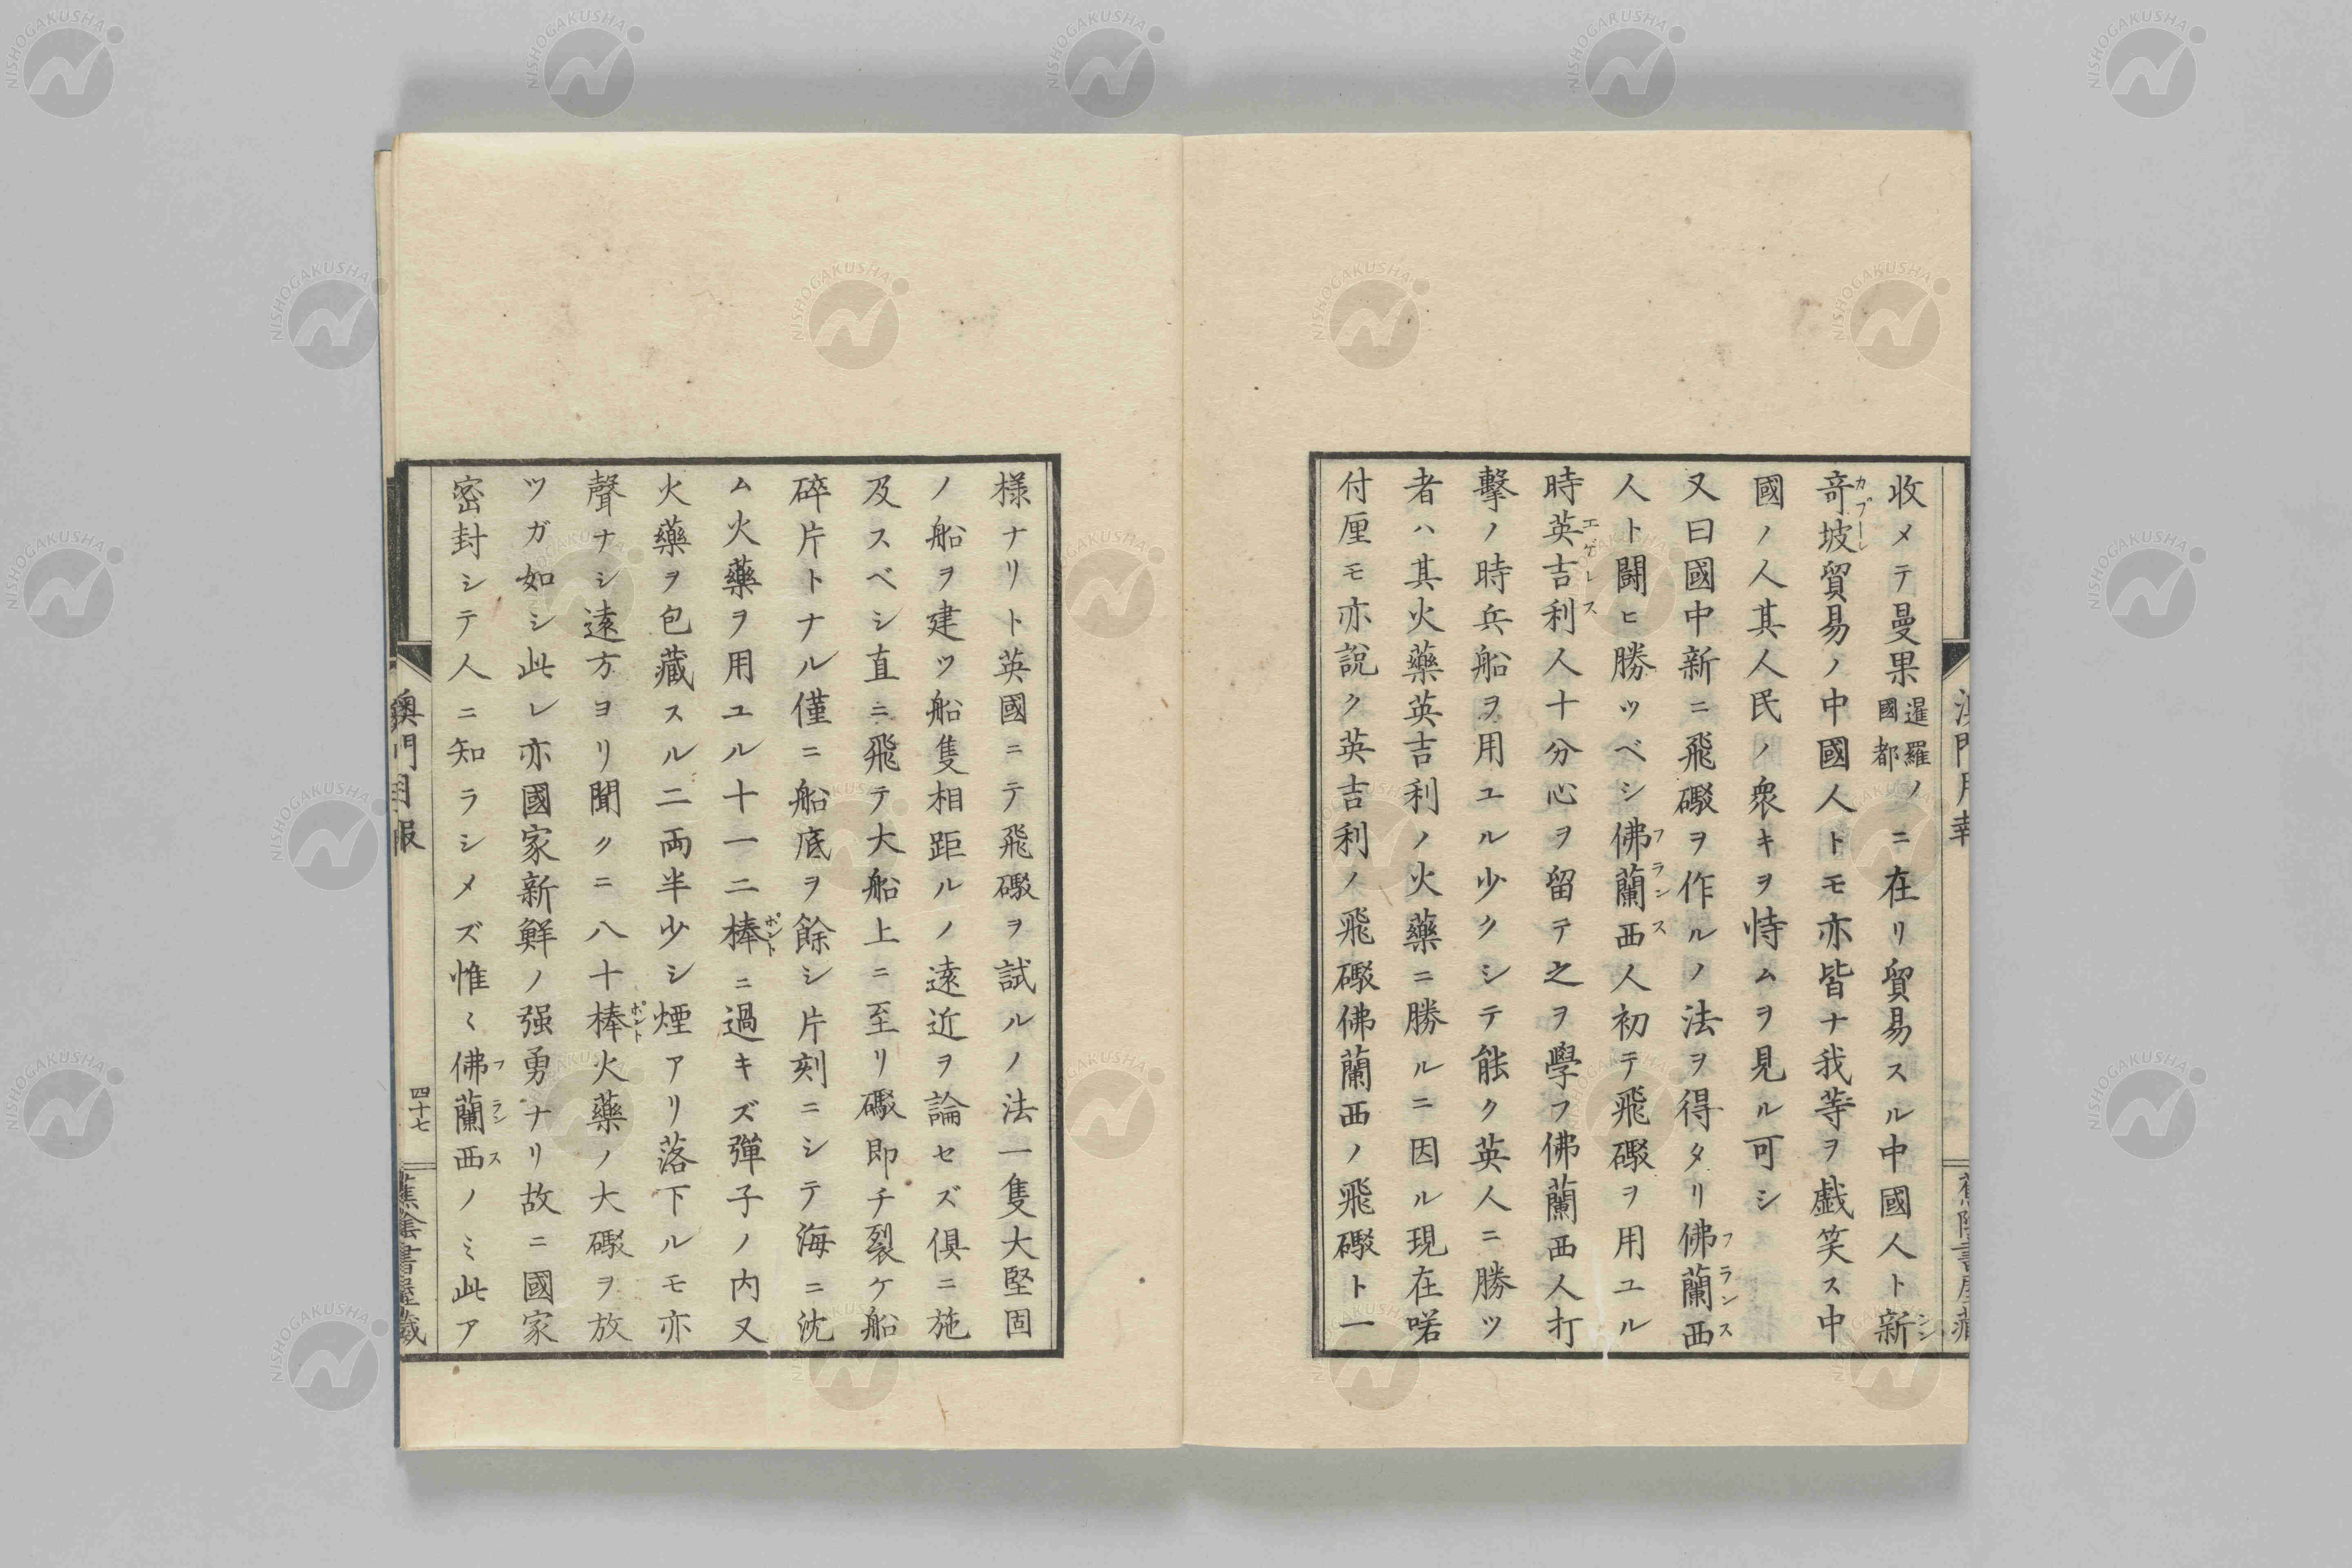 収メテ曼果暹羅國都ノニ在リ貿易スル中國人ト新
竒坡貿易ノ中國人トモ亦皆ナ我等ヲ戯笑ス中
國ノ人其人民ノ衆キヲ恃ムヲ見ル可シ
又曰國中新ニ飛礮ヲ作ルノ法ヲ得タリ佛蘭西
人ト闘ヒ勝ツベシ佛蘭西人初テ飛礮ヲ用ユル
時英吉利人十分心ヲ留テ之ヲ學フ佛蘭西人打
擊ノ時兵船ヲ用ユル少クシテ能ク英人ニ勝ツ
者ハ其火藥英吉利ノ火藥ニ勝ルニ因ル現在喏
付厘モ亦説ク英吉利ノ飛礮佛蘭西ノ飛礮ト一
様ナリト英國ニテ飛礮ヲ試ルノ法一隻大堅固
ノ船ヲ建ツ船隻相距ルノ遠近ヲ論セズ俱ニ施
及スベシ直ニ飛テ大船上ニ至リ礮即チ裂ケ船
碎片トナル僅ニ船底ヲ餘シ片刻ニシテ海ニ沈
ム火藥ヲ用ユル十一二棒ニ過キズ彈子ノ内又
火藥ヲ包藏スル二两半少シ煙アリ落下ルモ亦
聲ナシ遠方ヨリ聞クニ八十棒火藥ノ大礮ヲ放
ツガ如シ此レ亦國家新鮮ノ强勇ナリ故ニ國家
密封シテ人ニ知ラシメズ惟〻佛蘭西ノミ此ア
澳門月報
四十七
蕉陰書屋藏
カプーレ
エゲレス
フランス
フランス
シン
ポント
ポント
フランス
NISHOGAKUSHA